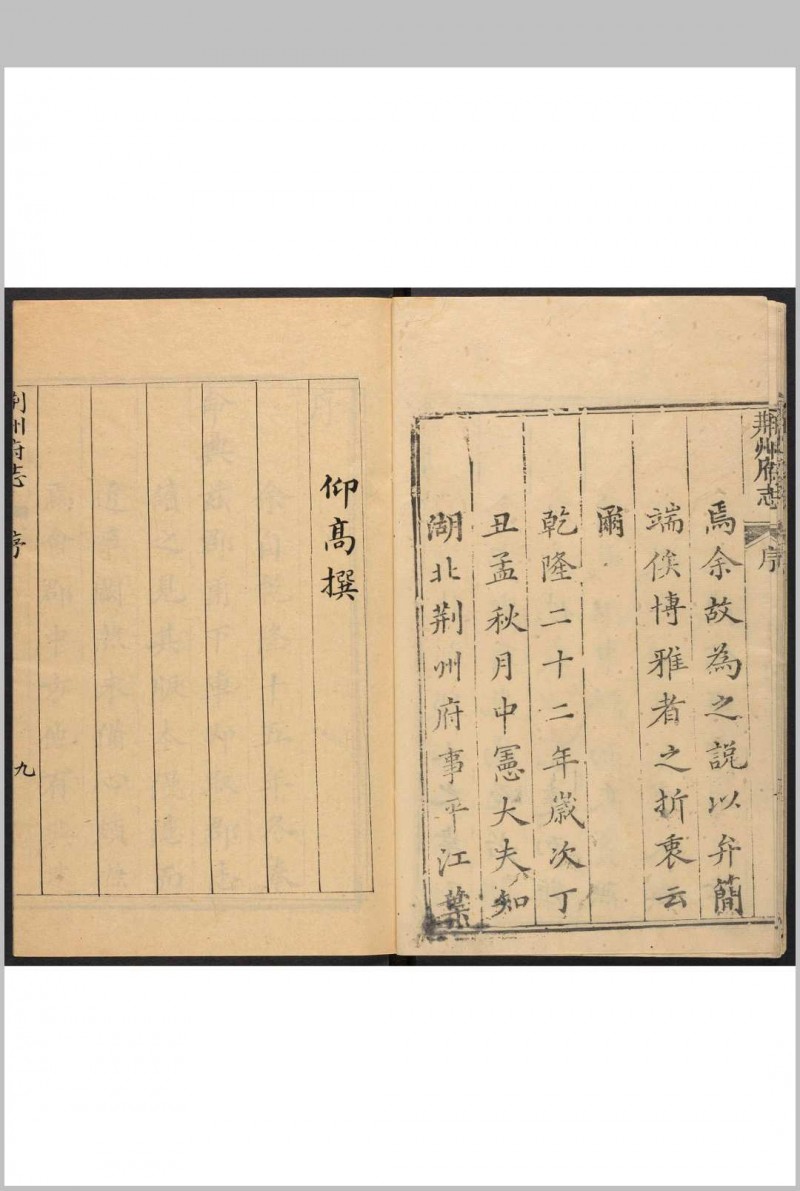 荆州府志
序
焉余故為之説以弁簡
端俟博雅者之折衷云
爾
乾隆二十二年歲次丁
丑孟秋月中憲大夫知
湖北荆州府事平江葉
仰高撰
荆州府志
序
九